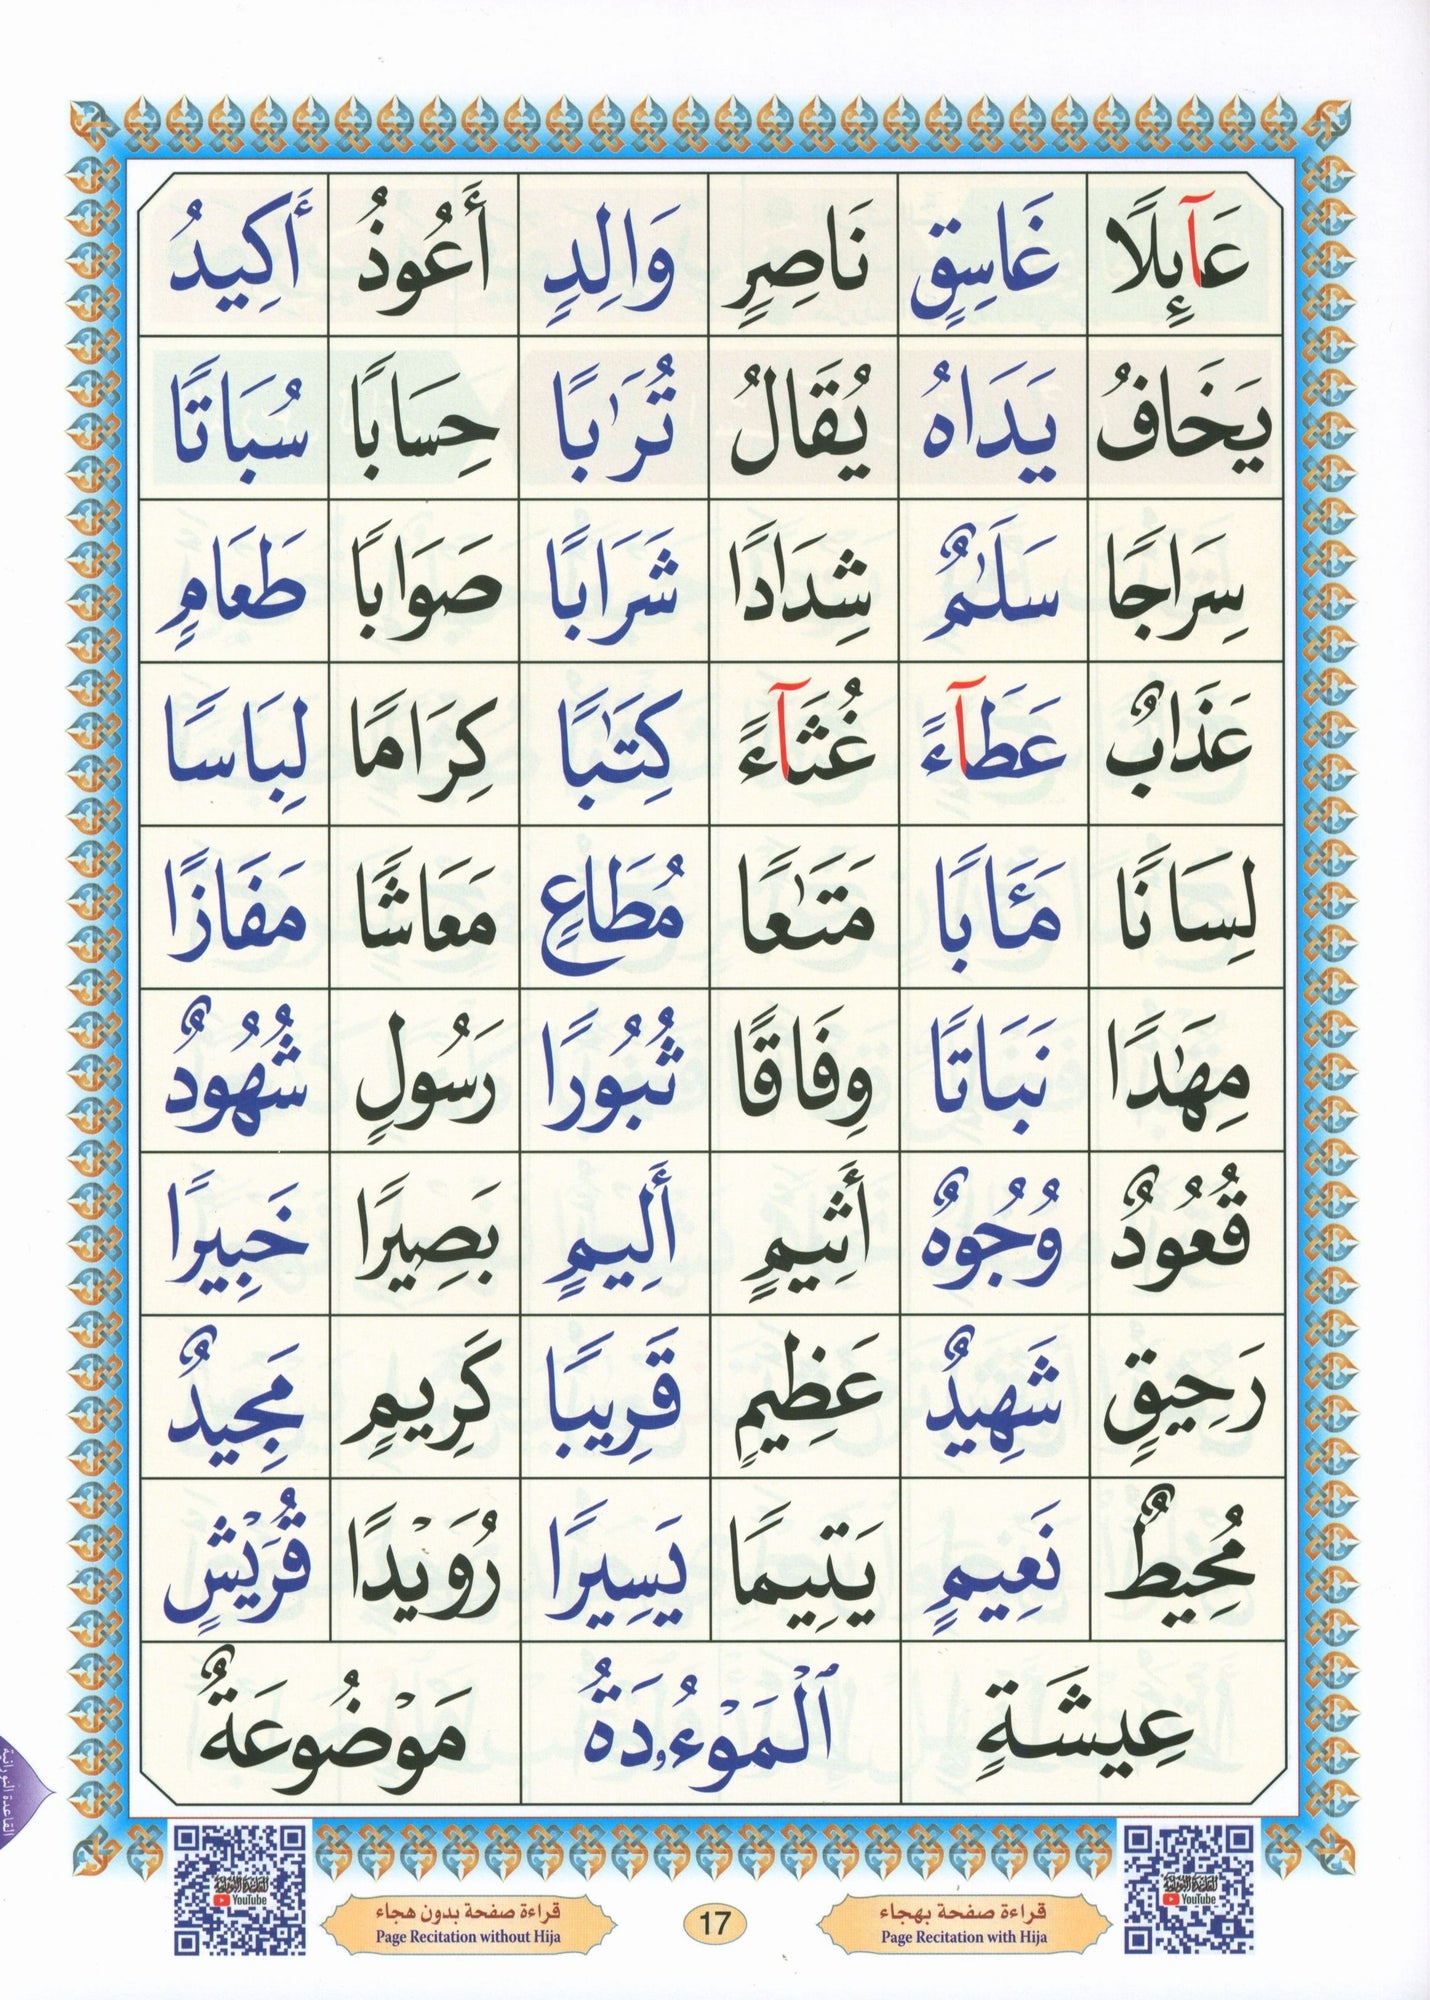 عَآئِلًا غَاسِقٍ نَاصِرٍ وَالِدٍ أَعُوذُ أَكِيدُ
يَخَافُ يَدَاهُ يُقَالُ تُرَٰبًا حِسَابًا سُبَاتًا
سِرَاجًا سَلَٰمٌ شِدَادًا شَرَابًا صَوَابًا طَعَامٍ
عَذَابٌ عَطَآءً غُثَآءً كِتَٰبًا كِرَامًا لِبَاسًا
لِسَانًا مَـَٔابًا مَتَٰعًا مُطَاعٍ مَعَاشًا مَفَازًا
مِهَٰدًا نَبَاتًا وِفَاقًا ثُبُورًا رَسُولٍ شُهُودٌ
قُعُودٌ وُجُوهٌ أَثِيمٍ أَلِيمٍ بَصِيرًا خَبِيرًا
رَحِيقٍ شَهِيدٌ عَظِيمٍ قَرِيبًا كَرِيمٍ مَجِيدٌ
مُحِيطٌ نَعِيمٍ يَتِيمًا يَسِيرًا رُوَيْدًا قُرَيْشٍ
عِيشَةٍ ٱلْمَوْءُۥدَةُ مَوْضُوعَةٌ
القاعدة النورانية
القاعدة النورانية
YouTube
قراءة صفحة بهجاء
Page Recitation with Hija
17
قراءة صفحة بدون هجاء
Page Recitation without Hija
القاعدة النورانية
YouTube